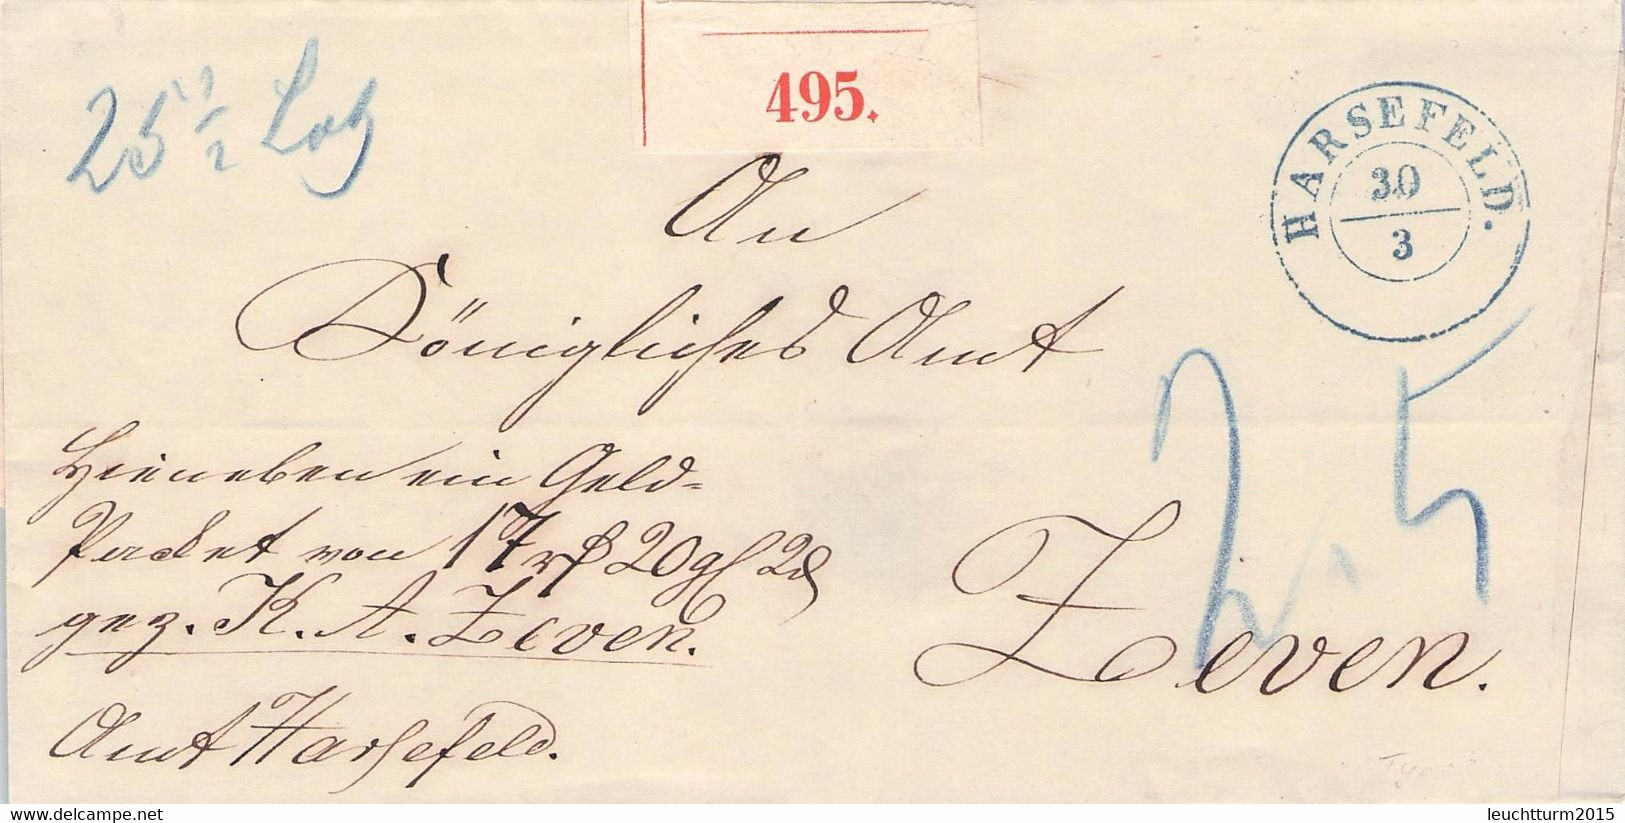 25 1/2 Loth
495.
HARSEFELD.
30
3
An
Königliches Amt
Hieneben ein Geld-
Packet von 17 rf 20 gl 2 d
gez. K. A. Zeven.
Amt Harsefeld.
Zeven.
2.5
leuchtturm2015